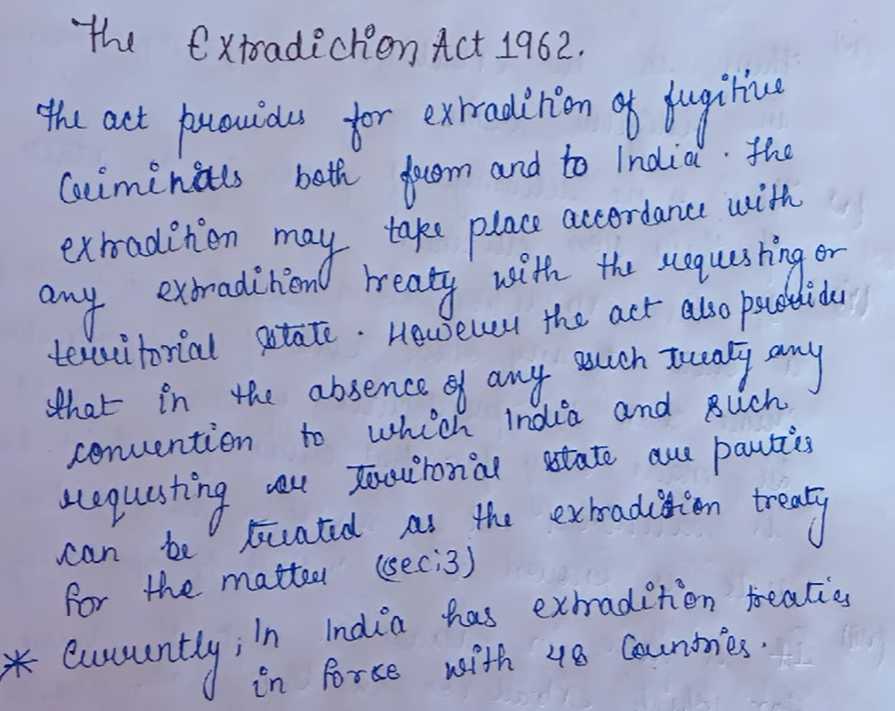 The Extradiction Act 1962.
The act provides for extradition of fugitive
Criminals both from and to India. The
extradition may take place accordance with
any extradition treaty with the requesting or
territorial state. However the act also provides
that in the absence of any such treaty any
convention to which India and such
requesting are Territorial state are parties
can be treated as the extradition treaty
for the matter (sec:3)
* Currently; In India has extradition treaties
in force with 48 Countries.